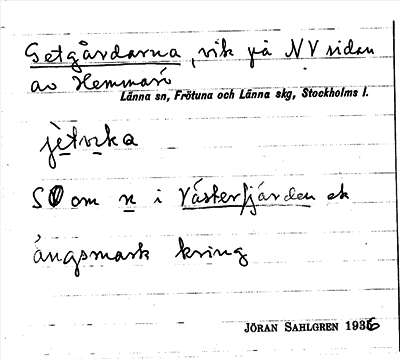 Getgårdarna, vik på NV sidan
av Hemmarö
Länna sn, Frötuna och Länna skg, Stockholms l.
jètvɩka
SO om n i Västerfjärden ek
ängsmark kring
JÖRAN SAHLGREN 1936